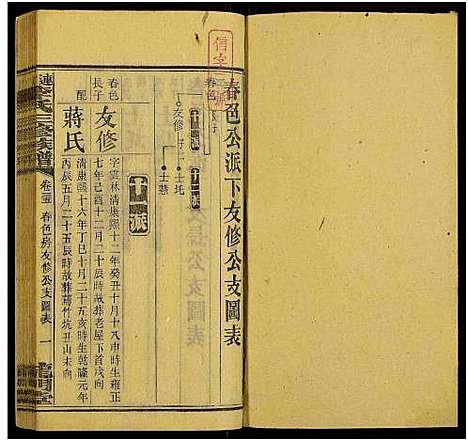 春色公派下友修公支圖表
信字
春色
友修
士珗
士懸
十一派
十二派
春色
長子
友修
配
蔣氏
字雲林清康熙十二年癸丑十月十八申時生雍正
七年己酉十二月二十辰時故葬老屋下首戌向
清康熙十六年丁巳十月二十五亥時生乾隆元年
丙辰五月二十五辰時故葬蔣竹坑丑山未向
氏三修族譜
卷三十五
春色房友修公支圖表
一